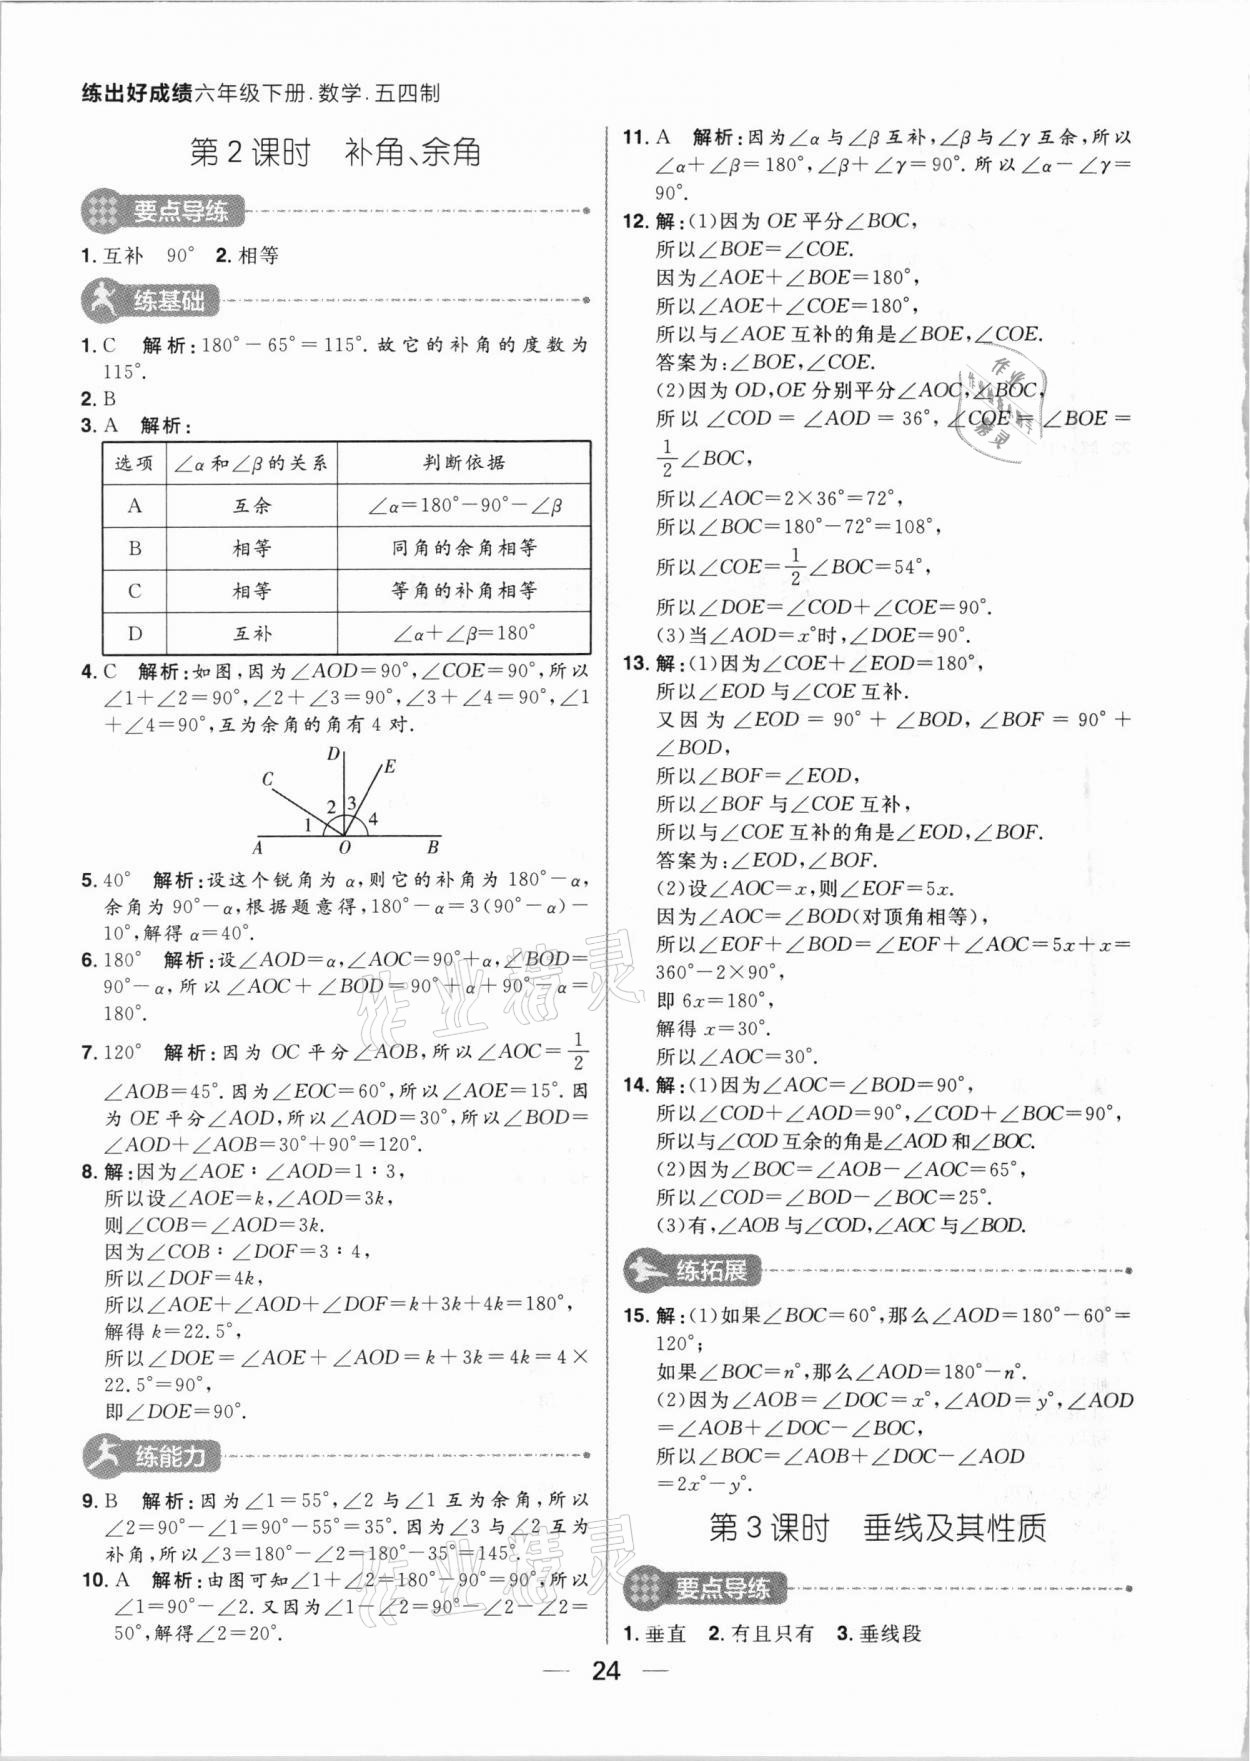 练出好成绩六年级下册.数学.五四制
第2课时 补角、余角
要点导练
1.互补 90° 2.相等
练基础
1.C 解析:180°-65°=115°.故它的补角的度数为
115°.
2.B
3.A 解析:
选项 ∠α和∠β的关系 判断依据
A 互余 ∠α=180°-90°-∠β
B 相等 同角的余角相等
C 相等 等角的补角相等
D 互补 ∠α+∠β=180°
4.C 解析:如图,因为∠AOD=90°,∠COE=90°,所以
∠1+∠2=90°,∠2+∠3=90°,∠3+∠4=90°,∠1
+∠4=90°,互为余角的角有4对.
D
E
C
2 3
1 4
A O B
5.40° 解析:设这个锐角为α,则它的补角为180°-α,
余角为90°-α,根据题意得,180°-α=3(90°-α)-
10°,解得α=40°.
6.180° 解析:设∠AOD=α,∠AOC=90°+α,∠BOD=
90°-α,所以∠AOC+∠BOD=90°+α+90°-α=
180°.
7.120° 解析:因为OC平分∠AOB,所以∠AOC=1/2
∠AOB=45°.因为∠EOC=60°,所以∠AOE=15°.因
为OE平分∠AOD,所以∠AOD=30°,所以∠BOD=
∠AOD+∠AOB=30°+90°=120°.
8.解:因为∠AOE∶∠AOD=1∶3,
所以设∠AOE=k,∠AOD=3k,
则∠COB=∠AOD=3k.
因为∠COB∶∠DOF=3∶4,
所以∠DOF=4k,
所以∠AOE+∠AOD+∠DOF=k+3k+4k=180°,
解得k=22.5°,
所以∠DOE=∠AOE+∠AOD=k+3k=4k=4×
22.5°=90°,
即∠DOE=90°.
练能力
9.B 解析:因为∠1=55°,∠2与∠1互为余角,所以
∠2=90°-∠1=90°-55°=35°.因为∠3与∠2互为
补角,所以∠3=180°-∠2=180°-35°=145°.
10.A 解析:由图可知∠1+∠2=180°-90°=90°,所以
∠1=90°-∠2.又因为∠1-∠2=90°-∠2-∠2=
50°,解得∠2=20°.
11.A 解析:因为∠α与∠β互补,∠β与∠γ互余,所以
∠α+∠β=180°,∠β+∠γ=90°.所以∠α-∠γ=
90°.
12.解:(1)因为OE平分∠BOC,
所以∠BOE=∠COE.
因为∠AOE+∠BOE=180°,
所以∠AOE+∠COE=180°,
所以与∠AOE互补的角是∠BOE,∠COE.
答案为:∠BOE,∠COE.
(2)因为OD,OE分别平分∠AOC,∠BOC,
所以∠COD=∠AOD=36°,∠COE=∠BOE=
1/2∠BOC,
所以∠AOC=2×36°=72°,
所以∠BOC=180°-72°=108°,
所以∠COE=1/2∠BOC=54°,
所以∠DOE=∠COD+∠COE=90°.
(3)当∠AOD=x°时,∠DOE=90°.
13.解:(1)因为∠COE+∠EOD=180°,
所以∠EOD与∠COE互补.
又因为∠EOD=90°+∠BOD,∠BOF=90°+
∠BOD,
所以∠BOF=∠EOD,
所以∠BOF与∠COE互补,
所以与∠COE互补的角是∠EOD,∠BOF.
答案为:∠EOD,∠BOF.
(2)设∠AOC=x,则∠EOF=5x.
因为∠AOC=∠BOD(对顶角相等),
所以∠EOF+∠BOD=∠EOF+∠AOC=5x+x=
360°-2×90°,
即6x=180°,
解得x=30°.
所以∠AOC=30°.
14.解:(1)因为∠AOC=∠BOD=90°,
所以∠COD+∠AOD=90°,∠COD+∠BOC=90°,
所以与∠COD互余的角是∠AOD和∠BOC.
(2)因为∠BOC=∠AOB-∠AOC=65°,
所以∠COD=∠BOD-∠BOC=25°.
(3)有,∠AOB与∠COD,∠AOC与∠BOD.
练拓展
15.解:(1)如果∠BOC=60°,那么∠AOD=180°-60°=
120°;
如果∠BOC=n°,那么∠AOD=180°-n°.
(2)因为∠AOB=∠DOC=x°,∠AOD=y°,∠AOD
=∠AOB+∠DOC-∠BOC,
所以∠BOC=∠AOB+∠DOC-∠AOD
=2x°-y°.
第3课时 垂线及其性质
要点导练
1.垂直 2.有且只有 3.垂线段
— 24 —
作业精灵
作业精灵
作业
精灵